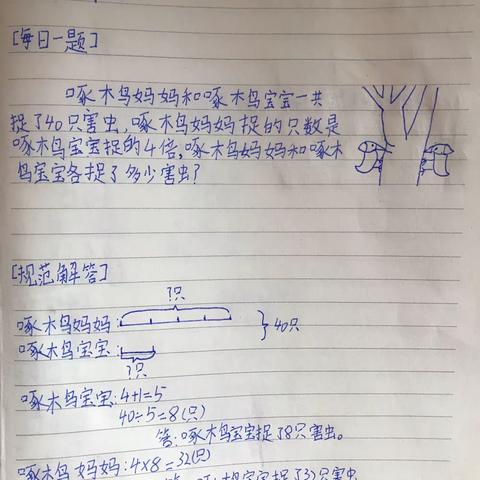 [每日一题]
啄木鸟妈妈和啄木鸟宝宝一共
捉了40只害虫,啄木鸟妈妈捉的只数是
啄木鸟宝宝捉的4倍,啄木鸟妈妈和啄木
鸟宝宝各捉了多少害虫?
[规范解答]
?只
啄木鸟妈妈:
40只
啄木鸟宝宝:
?只
啄木鸟宝宝:4+1=5
40÷5=8(只)
答:啄木鸟宝宝捉了8只害虫。
啄木鸟妈妈:4×8=32(只)
捉了32只害虫